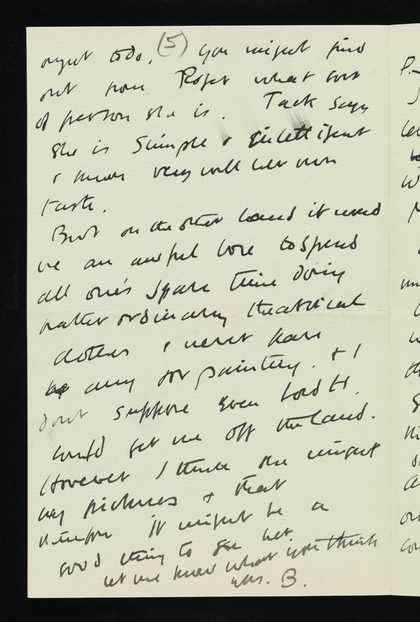 ought to do. (5) You might find
out from Roger what sort
of person she is. Tack says
she is simple & intelligent
& knows very well her own
taste.
But on the other hand it would
be an awful bore to spend
all one's spare time doing
rather ordinary theatrical
clothes & never have
any for painting. & I
don't suppose even Lord H.
could get me off the land.
However I think she might
my pictures & that
therefore it might be a
good thing to see her.
let me know what you think
yrs. B.